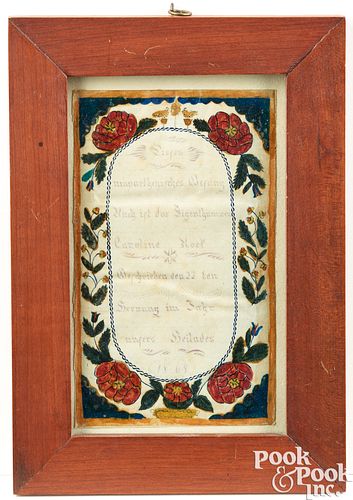 Dieses
unpartheyisches Gesang
Buch ist das Eigenthum von
Caroline Roel
Geschrieben den 22 ten
Hornung im Jahr
unsers Heilandes
1868
POOK
& POOK
Inc.